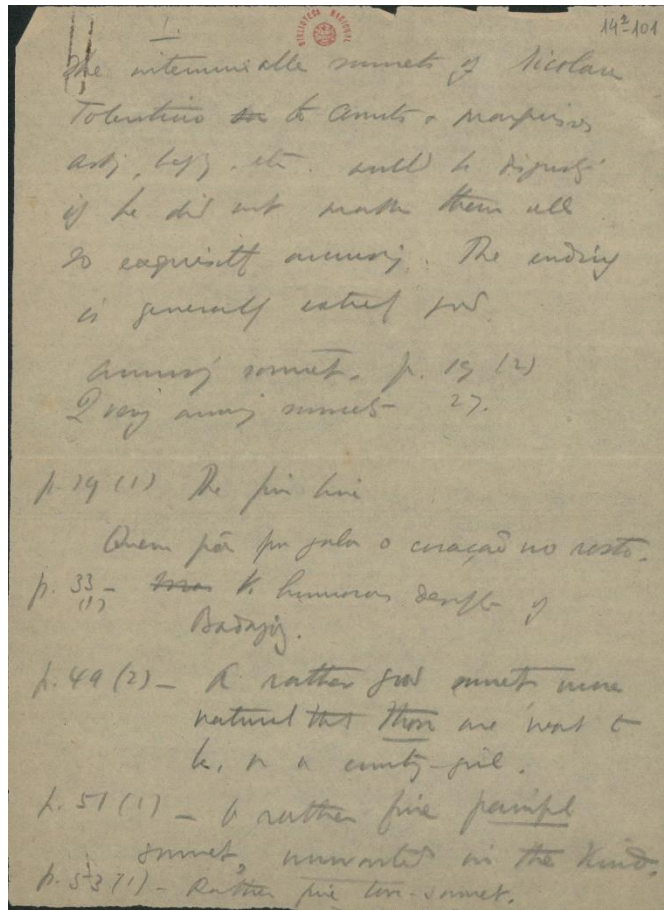 I.
14²-101
BIBLIOTECA NACIONAL
The interminable sonnets of Nicolau
Tolentino to Counts & marquises
asking, begging, etc. would be disgusting
if he did not make them all
so exquisitely amusing. The ending
is generally extremely good.
Amusing sonnet. p. 19 (2)
2 very amusing sonnets 27.
p. 29 (1) The fine line
Quem põe por gala o coração no rosto.
p. 33 (1) – V. humorous description of
Badajoz.
p. 49 (2) – A rather good sonnet more
natural than are wont to
be, on a country-girl.
p. 51 (1) – A rather fine painful
sonnet, unwonted in the kind.
p. 53 (1) – Rather fine love-sonnet.